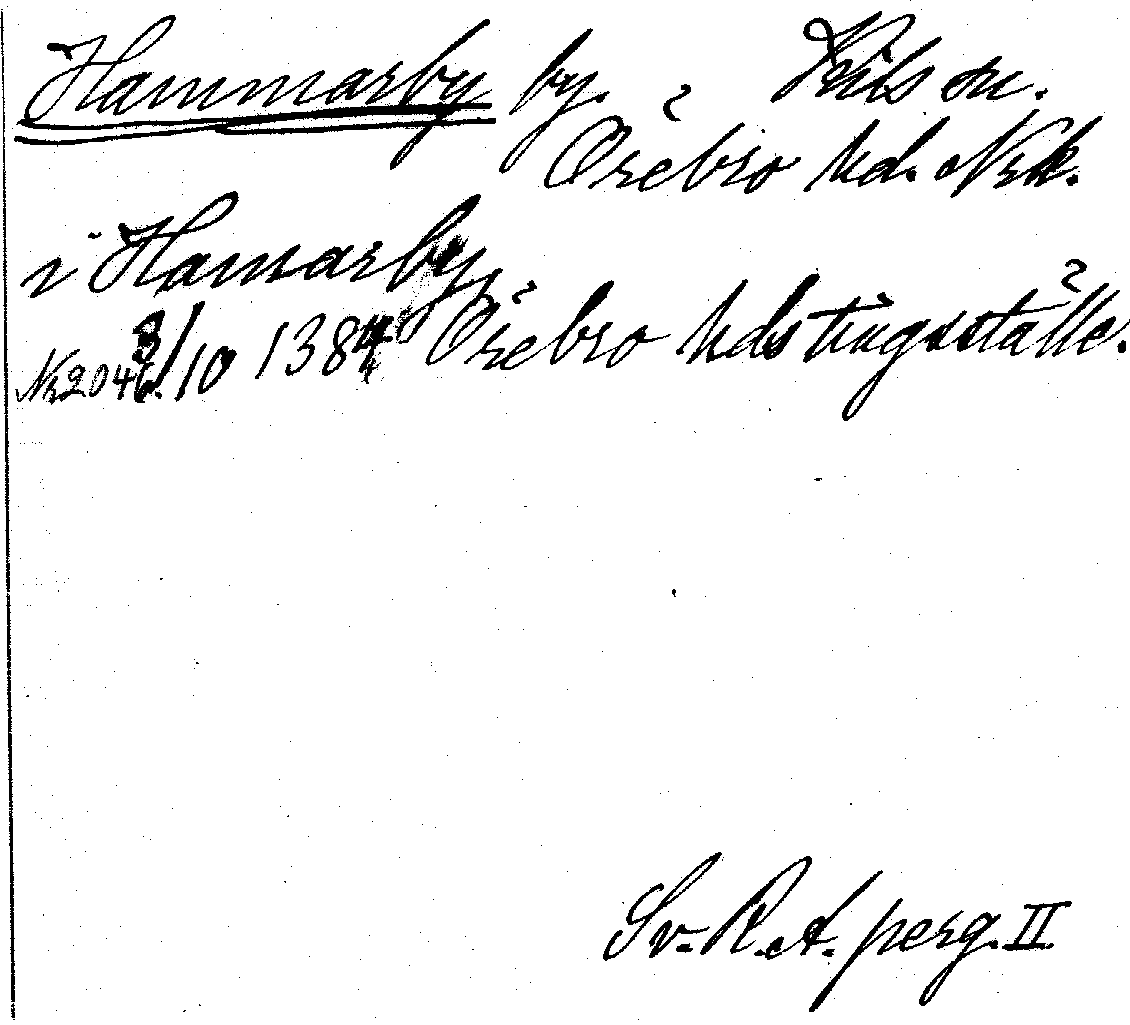 Hammarby by. Kils sn.
Örebro hd. Nrk.
i Hamarby,
Nr 2046. 3/10 1384 Örebro hds tingsställe.
Sv. R. A. perg. II